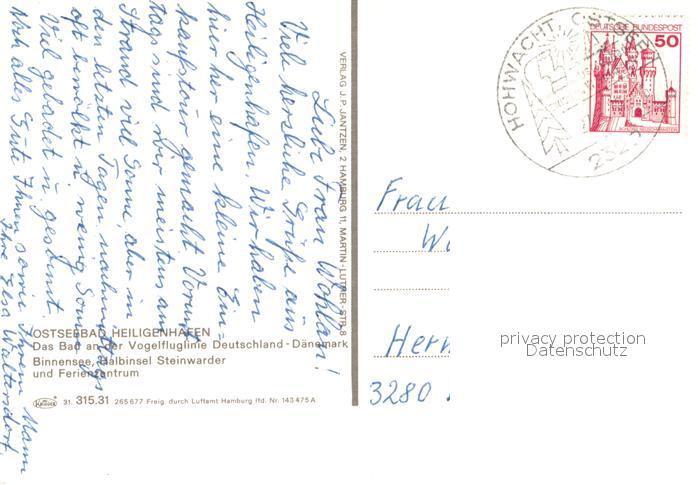 Liebe Frau Wohllan!
Viele herzliche Grüße aus
Heiligenhafen. Wir haben
hier her eine kleine Ein=
kaufstour gemacht. Vormit
tags sind wir meistens am
Strand viel Sonne, aber in
den letzten Tagen nachmittags
oft bewölkt u. wenig Sonne
Viel gebadet u.
Noch alles Gute Ihnen sowie Ihrem Mann
Ihre Elsa
VERLAG J. P. JANTZEN, 2 HAMBURG 11, MARTIN-LUTHER-STR. 8
OSTSEEBAD HEILIGENHAFEN
Das Bad an der Vogelfluglinie Deutschland - Dänemark
Binnensee, Halbinsel Steinwarder
und Ferienzentrum
31. 315.31 265677 Freig. durch Luftamt Hamburg lfd. Nr. 143475 A
HOHWACHT, OSTSEE
DEUTSCHE BUNDESPOST
50
Frau
3280
privacy protection
Datenschutz